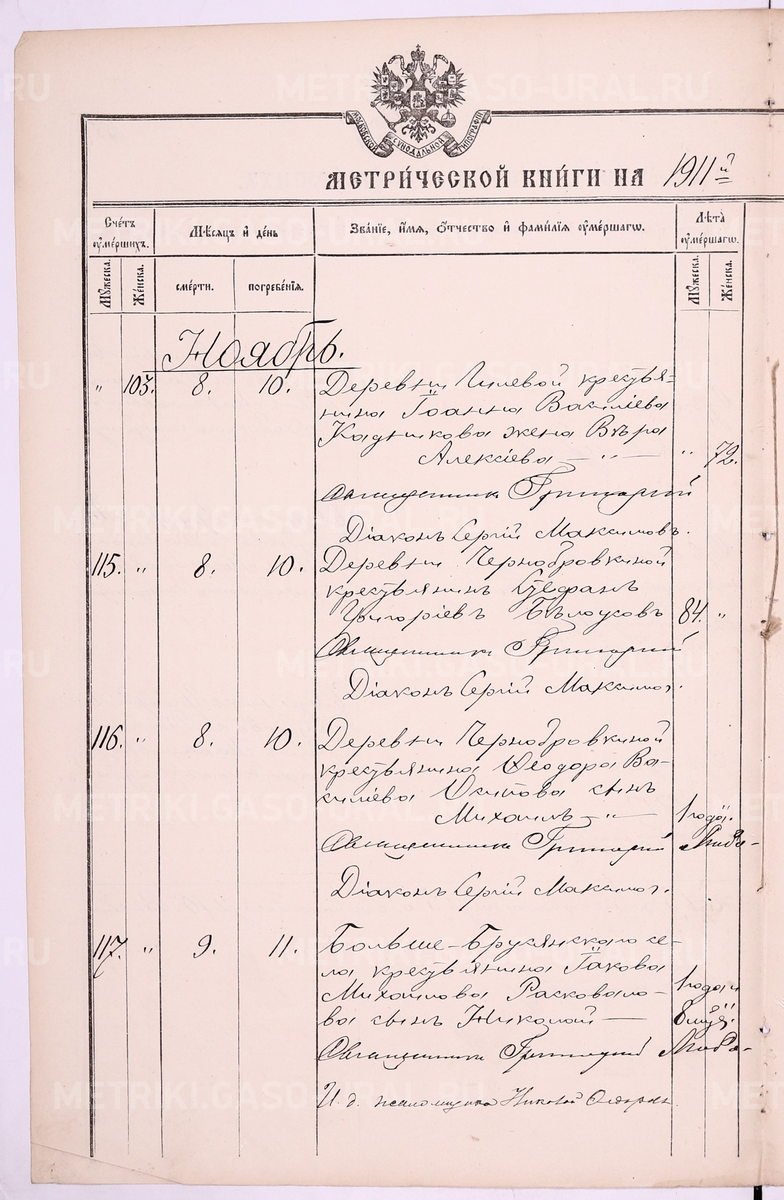 METRIKI.GASO-URAL.RU
МОСКОВСКОЙ СѴНОДАЛЬНОЙ ТИПОГРАФІИ
МЕТРИ́ЧЕСКОЙ КНИ́ГИ НА 1911й
Сче́тъ ᲂу҆ме́ршихъ.
Мѣ́сяцъ и҆ де́нь
Зва́нїе, и҆́мя, ѻ҆́тчество и҆ фами́лїя ᲂу҆ме́ршагѡ.
Лѣ́та ᲂу҆ме́ршагѡ.
Мꙋ́жеска.
Же́нска.
сме́рти.
погребе́нїя.
Мꙋ́жеска.
Же́нска.
Ноябрь.
" 103. 8. 10. Деревни Гилевой крестья-
нина Іоанна Василіева
Кадникова жена Вѣра
Алексіева — " — " 72.
Священникъ Григорій
Діаконъ Сергій Максимовъ.
115. " 8. 10. Деревни Чернобровкиной
крестьянинъ Стефанъ
Григоріевъ Бѣлоусовъ 84. "
Священникъ Григорій
Діаконъ Сергій Максимов.
116. " 8. 10. Деревни Чернобровкиной
крестьянина Ѳеодора Ва-
силіева Осипова сынъ
Михаилъ — " — 1 года.
Священникъ Григорій
Діаконъ Сергій Максимов.
117. " 9. 11. Больше-Брусянскаго се-
ла крестьянина Іакова
Михаилова Расковало- 1 года и
ва сынъ Николай — 8 мцв.
Священникъ Григорій
И. д. псаломщика Николай